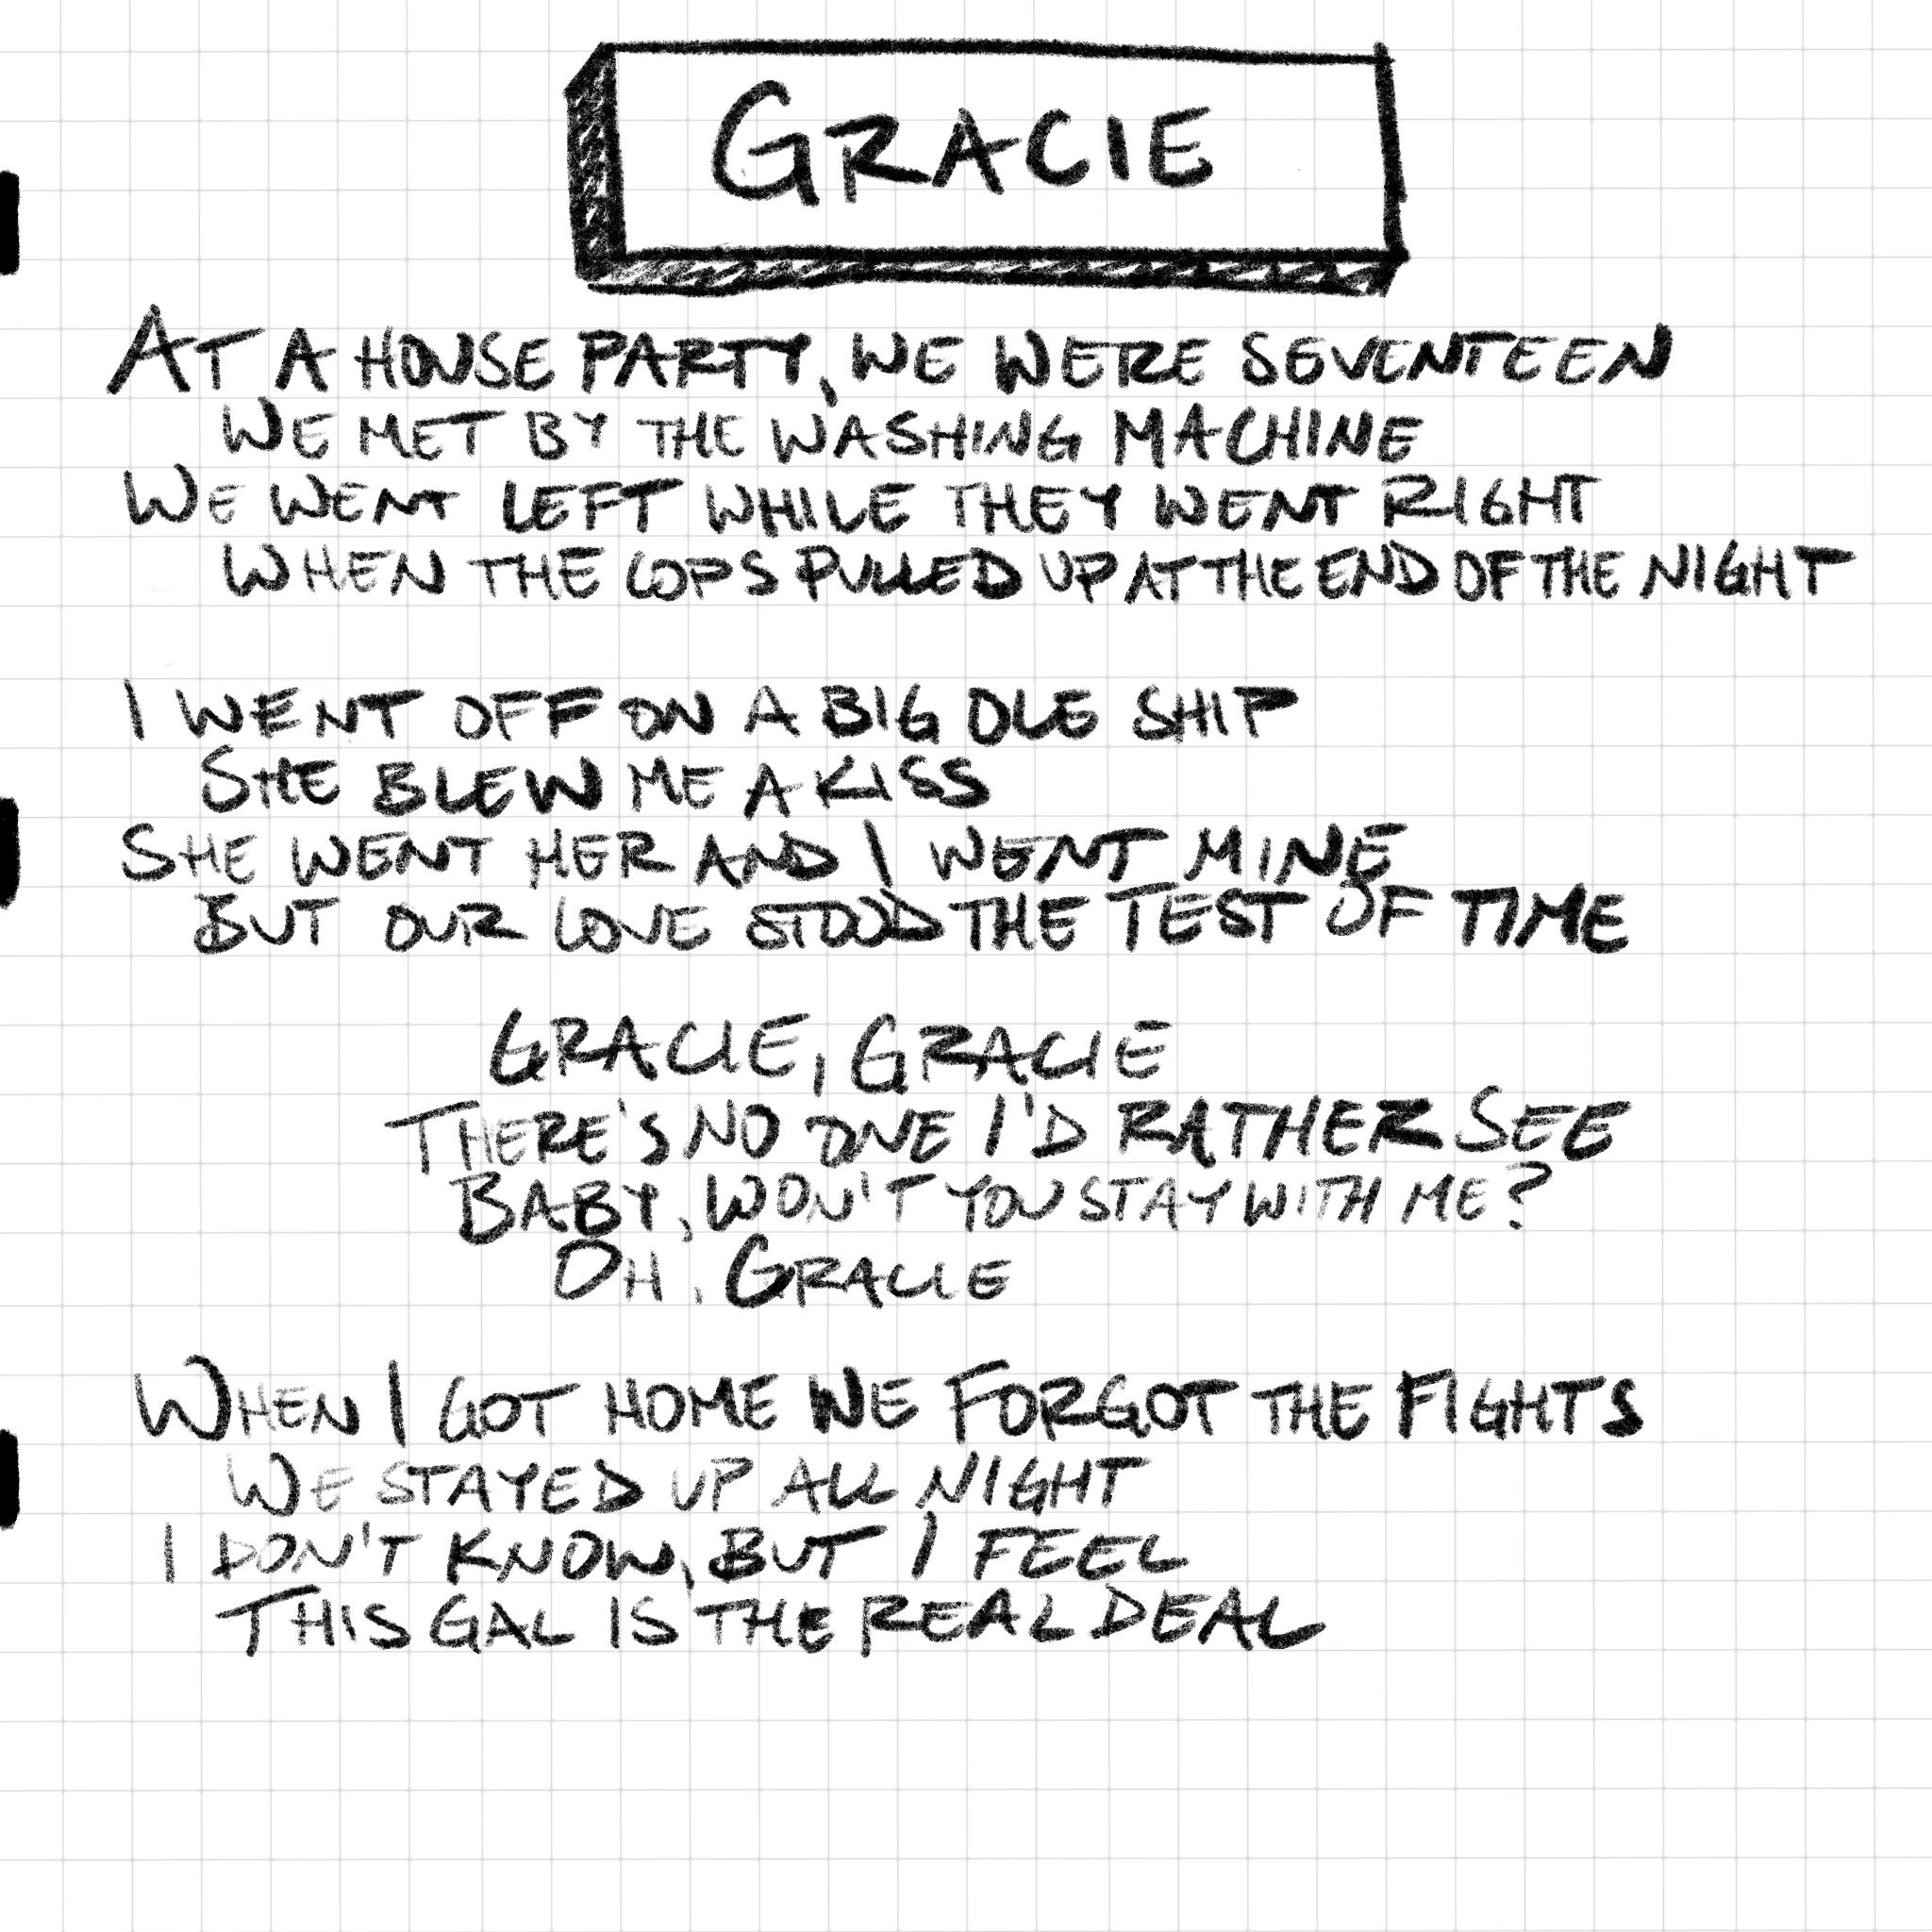 GRACIE
AT A HOUSE PARTY, WE WERE SEVENTEEN
WE MET BY THE WASHING MACHINE
WE WENT LEFT WHILE THEY WENT RIGHT
WHEN THE COPS PULLED UP AT THE END OF THE NIGHT
I WENT OFF ON A BIG OLE SHIP
SHE BLEW ME A KISS
SHE WENT HER AND I WENT MINE
BUT OUR LOVE STOOD THE TEST OF TIME
GRACIE, GRACIE
THERE'S NO ONE I'D RATHER SEE
BABY, WON'T YOU STAY WITH ME?
OH, GRACIE
WHEN I GOT HOME WE FORGOT THE FIGHTS
WE STAYED UP ALL NIGHT
I DON'T KNOW, BUT I FEEL
THIS GAL IS THE REAL DEAL